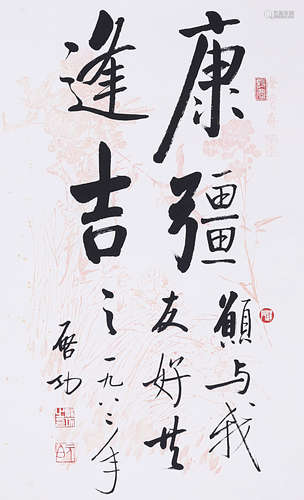 康疆
逢吉
願与我
友好共
之一九八二年
启功